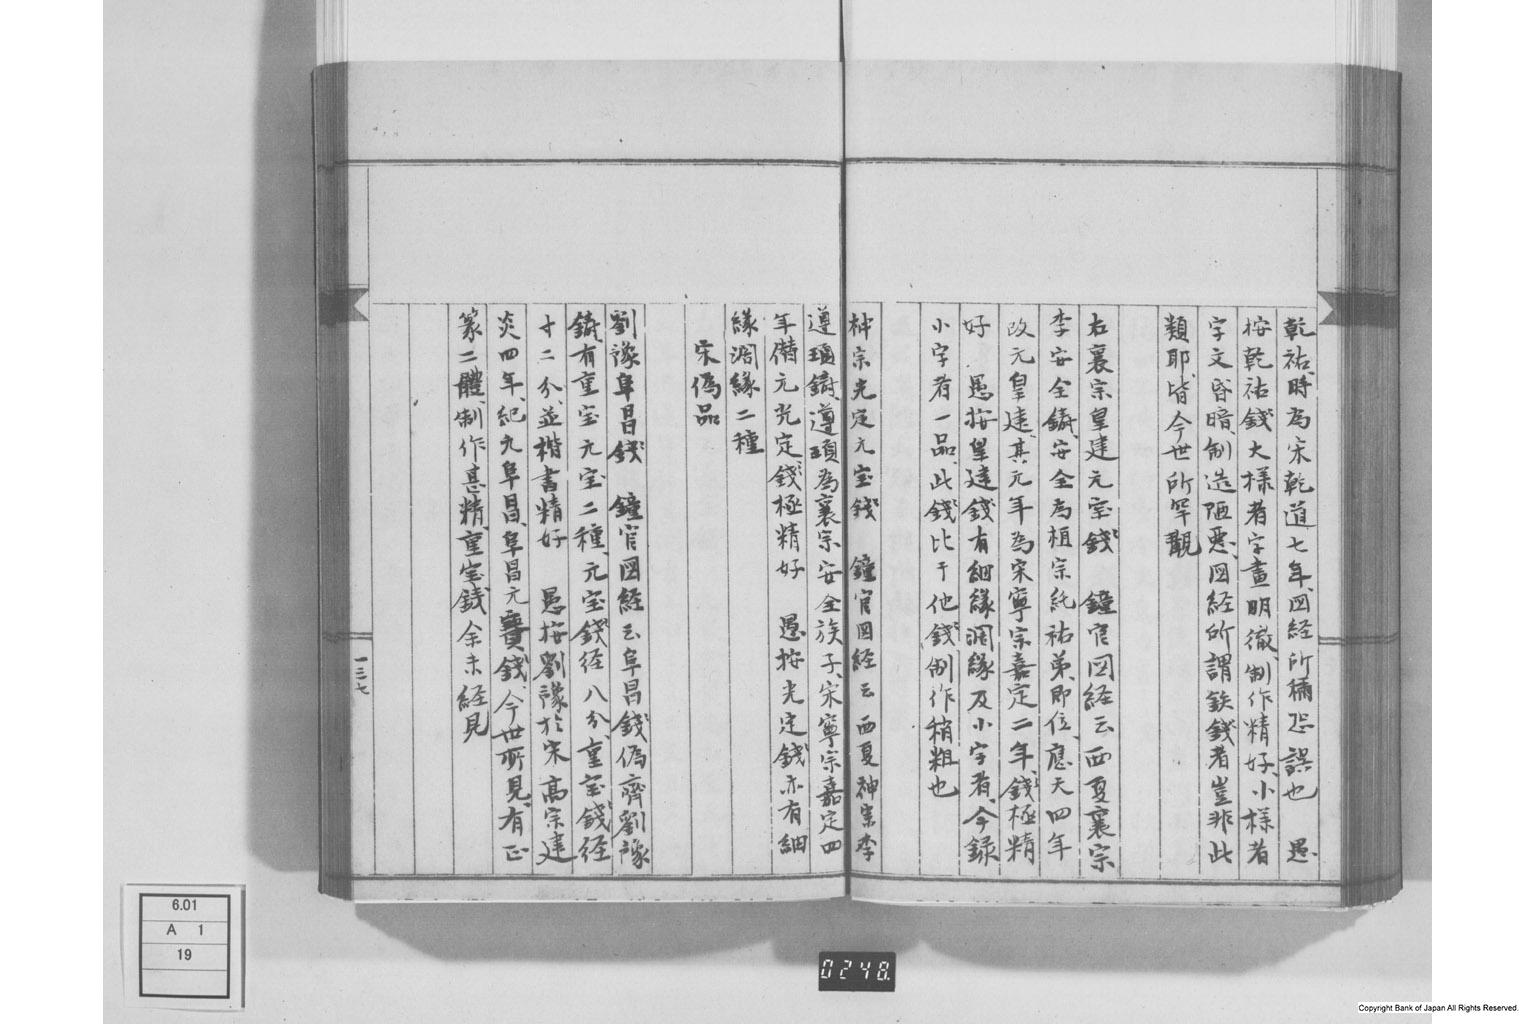 乾祐、時為宋乾道七年、図経所稱恐誤也　愚
按乾祐錢大様者字畫明徹、制作精好、小様者
字文昏暗、制造陋悪、図経所謂鉄錢者豈非此
類耶、皆今世所罕覯
右襄宗皇建元宝錢　鐘官図経云西夏襄宗
李安全鋳、安全為桓宗純祐弟、即位、應天四年
改元皇建、其元年為宋寧宗嘉定二年、錢極精
好　愚按皇建錢有細緣濶緣及小字者、今録
小字者一品、此錢比于他錢制作稍粗也
神宗光定元宝錢　鐘官図経云西夏神宗李
遵頊鋳、遵頊為襄宗安全族子、宋寧宗嘉定四
年僭元光定、錢極精好　愚按光定錢亦有細
緣濶緣二種
宋偽品
劉豫阜昌錢　鐘官図経云阜昌錢偽齊劉豫
鋳、有重宝元宝二種、元宝錢径八分、重宝錢径
寸二分、並楷書精好　愚按劉豫於宋高宗建
炎四年、紀元阜昌、阜昌元寶錢、今世所見、有正
篆二體、制作甚精、重宝錢余未経見
一三七
6.01
A 1
19
0248.
Copyright Bank of Japan All Rights Reserved.